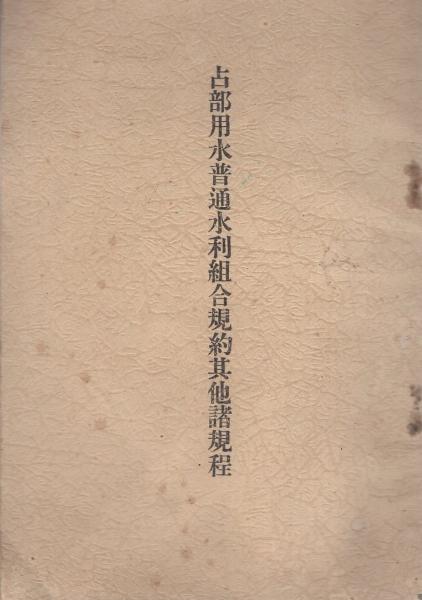 占部用水普通水利組合規約其他諸規程